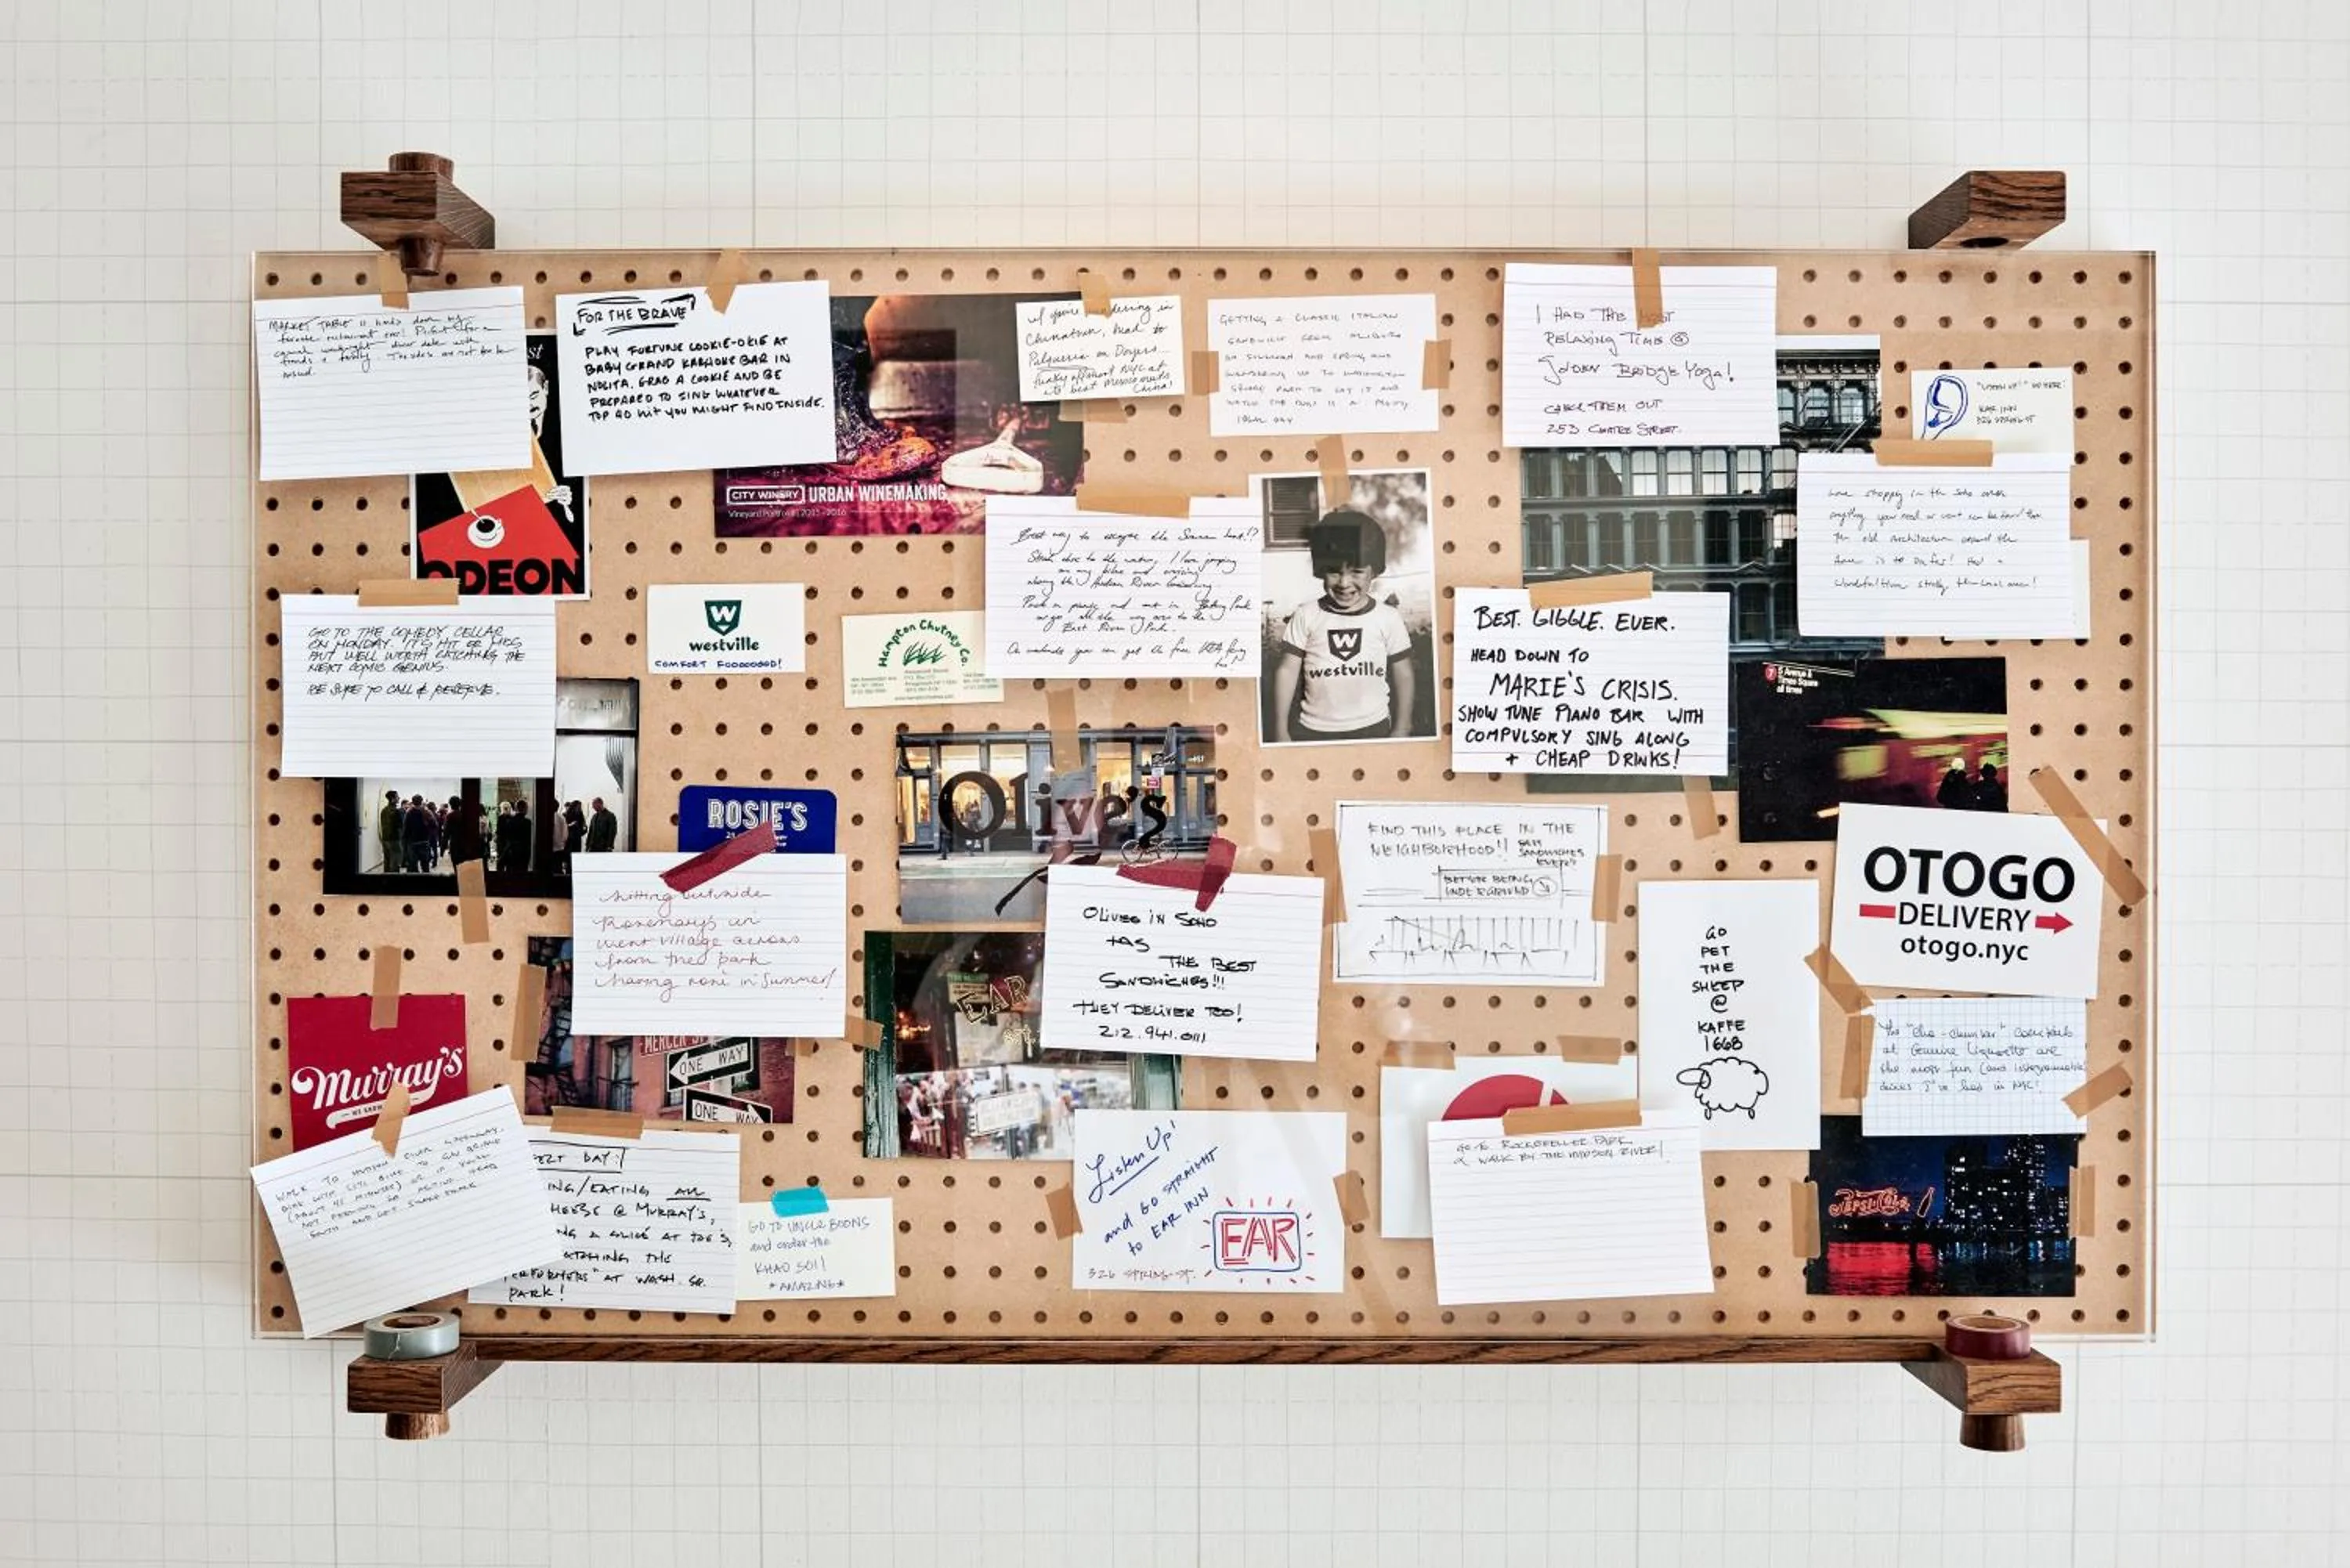 MARKET TABLE is hands down my
favorite restaurant ever! Perfect for a
casual weeknight dinner date with
friends & family. The sides are not to be
missed.
FOR THE BRAVE
PLAY FORTUNE COOKIE-OKIE AT
BABY GRAND KARAOKE BAR IN
NOLITA. GRAB A COOKIE AND BE
PREPARED TO SING WHATEVER
TOP 40 HIT YOU MIGHT FIND INSIDE.
ODEON
CITY WINERY URBAN WINEMAKING
Vineyard Portfolio | 2015-2016
If you're wandering in
Chinatown, head to
Pulqueria on Doyers
funky offbeat NYC at
its best Mexico meets
China!
GETTING A CLASSIC ITALIAN
SANDWICH FROM
ON SULLIVAN AND SPRING AND
WANDERING UP TO WASHINGTON
SQUARE PARK TO EAT IT AND
WATCH THE IS A PRETTY
IDEAL DAY
I HAD THE MOST
RELAXING TIME @
GOLDEN BRIDGE YOGA!
CHECK THEM OUT
253 CENTRE STREET.
"LISTEN UP!"
EAR INN
326 SPRING ST
Love shopping in the Soho area
anything you need or want can be found here
The old architecture around the
area is to die for! Had a
wonderful time
GO TO THE COMEDY CELLAR
ON MONDAY. IT'S HIT OR MISS
BUT WELL WORTH CATCHING THE
NEXT COMIC GENIUS.
BE SURE TO CALL & RESERVE.
westville
COMFORT FOOOOOOD!
Hampton Chutney Co.
Best way to escape the Summer heat!?
Stick close to the water, I love jumping
on my bike and cruising
along the Hudson River
Pack a picnic and eat in Battery Park
or go all the way over to the
East River Park.
On weekends you can get the free IKEA ferry
too!
W
westville
BEST. GIGGLE. EVER.
HEAD DOWN TO
MARIE'S CRISIS.
SHOW TUNE PIANO BAR WITH
COMPULSORY SING ALONG
+ CHEAP DRINKS!
7 5 Avenue &
Times Square
all times
ROSIE'S
Olive's
sitting outside
Rosemary's in
west village across
from the park
having rosé in Summer!
OLIVES IN SOHO
HAS
THE BEST
SANDWICHES!!!
THEY DELIVER TOO!
212.941.0111
FIND THIS PLACE IN THE
NEIGHBORHOOD!! BEST
SANDWICHES
EVER!!
OTOGO
DELIVERY
otogo.nyc
GO
PET
THE
SHEEP
@
KAFFE
1668
The "cha-chunker" cocktails
at Genuine Liquorette are
the most fun (and instagramable)
drinks I've had in NYC!
Murray's
MERCER ST
ONE WAY
ONE WAY
EAR
est.
WALK TO HUDSON RIVER GREENWAY.
BIKE WITH CITI BIKE TO GW BRIDGE
(ABOUT 45 MINUTES) OR IF YOU'RE
NOT FEELING SO ACTIVE HEAD
SOUTH AND GET SHAKE SHACK
DAY!
ING/EATING ALL
HEESE @ MURRAY'S,
NG A SLICE AT JOE'S,
ATCHING THE
ERFORMERS" AT WASH. SQ.
PARK!
GO TO UNCLE BOONS
and order the
KHAO SOI!
*AMAZING*
Listen Up!
and GO STRAIGHT
to EAR INN
326 SPRING ST.
EAR
GO TO ROCKEFELLER PARK
& WALK BY THE HUDSON RIVER!
PEPSI COLA